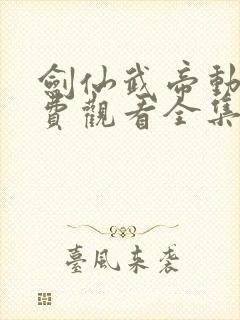 劍仙武帝動
費觀看全集
臺風來襲